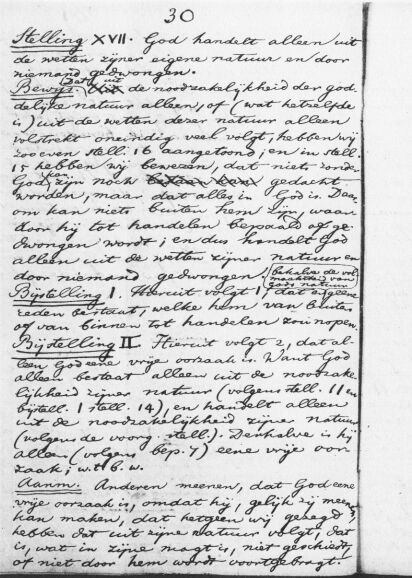 30
Stelling XVII. God handelt alleen uit
de wetten zijner eigene natuur en door
niemand gedwongen.
Bewijs. Dat uit de noodzakelijkheid der god-
delijke natuur alleen, of (wat hetzelfde
is) uit de wetten dezer natuur alleen
volstrekt oneindig veel volgt, hebben wij
zooeven stell. 16 aangetoond; en in stell.
15 hebben wij bewezen, dat niets zonder
God kan zijn noch gedacht
worden, maar dat alles in God is. Daar-
om kan niets buiten hem zijn, waar-
door hij tot handelen bepaald of ge-
dwongen wordt; en dus handelt God
alleen uit de wetten zijner natuur en
door niemand gedwongen.
behalve de vol-
maaktheid van
gods natuur
Bijstelling I. Hieruit volgt 1, dat er geene
reden bestaat, welke hem van buiten
of van binnen tot handelen zou nopen.
Bijstelling II. Hieruit volgt 2, dat al-
leen God eene vrije oorzaak is. Want God
alleen bestaat alleen uit de noodzake-
lijkheid zijner natuur (volgens stell. 11 en
bijstell. 1 stell. 14), en handelt alleen
uit de noodzakelijkheid zijner natuur
(volgens de voorg. stell.). Derhalve is hij
alleen (volgens bep. 7) eene vrije oor-
zaak; w.t.b.w.
Aanm. Anderen meenen, dat God eene
vrije oorzaak is, omdat hij, gelijk zij meenen,
kan maken, dat hetgeen wij gezegd
hebben dat uit zijne natuur volgt, dat
is, wat in zijne magt is, niet geschiedt,
of niet door hem wordt voortgebragt.